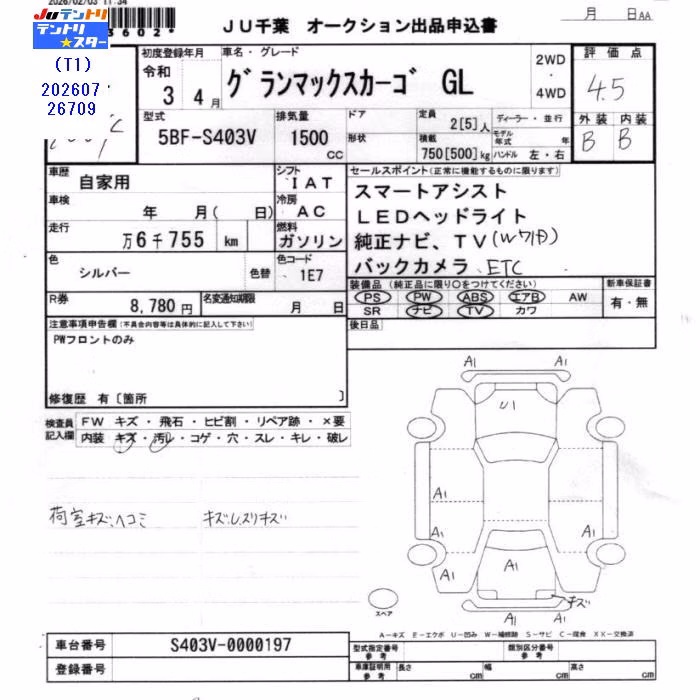 2026/02/03 11:34
JUテントリ
テントリ★スター
(T1)
202607
26709
3602*
JU千葉 オークション出品申込書
月 日AA
初度登録年月
令和
3 4月
車名・グレード
グランマックスカーゴ GL
2WD
・
4WD
評価点
4.5
外装 内装
B B
型式
5BF-S403V
排気量
1500
CC
ドア
形状
定員
2[5]人
積載
750[500]kg
ディーラー・並行
モデル年式 年
ハンドル 左・右
車歴
自家用
シフト
IAT
車検
年 月( 日)
冷房
AC
走行
万6千755 km
燃料
ガソリン
色
シルバー
色替
色コード
1E7
R券
8,780円
名変通知期限
月 日
セールスポイント(正常に機能するものに限ります)
スマートアシスト
LEDヘッドライト
純正ナビ、TV(Wワイカ)
バックカメラ ETC
装備品(純正品に限り○をつけてください)
PS PW ABS エアB AW
SR ナビ TV カワ
新車保証書
有・無
後日品
注意事項申告欄(不具合内容等は具体的に記入して下さい)
PWフロントのみ
修復歴 有〔箇所 〕
検査員記入欄
FW キズ・飛石・ヒビ割・リペア跡・×要
内装 キズ・汚レ・コゲ・穴・スレ・キレ・破レ
荷室キズ、ヘコミ
A1 A1
U1
A1 A1
A1 A1
A1 A1 A1
キズ
A1 A1
スペア
A-キズ E-エクボ U-凹み W-補修跡 S-サビ C-腐食 XX-交換済
車台番号
S403V-0000197
登録番号
型式指定番号
参考
類別区分番号
参考
車庫証明用
参考
長さ cm 幅 cm 高さ cm